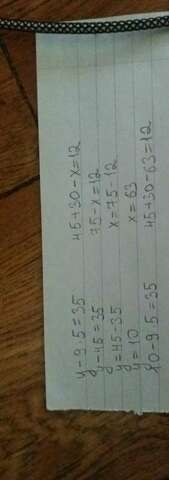 y-9·5=35 45+30-x=12
y-45=35 75-x=12
y=45-35 x=75-12
y=10 x=63
10-9·5=35 45+30-63=12